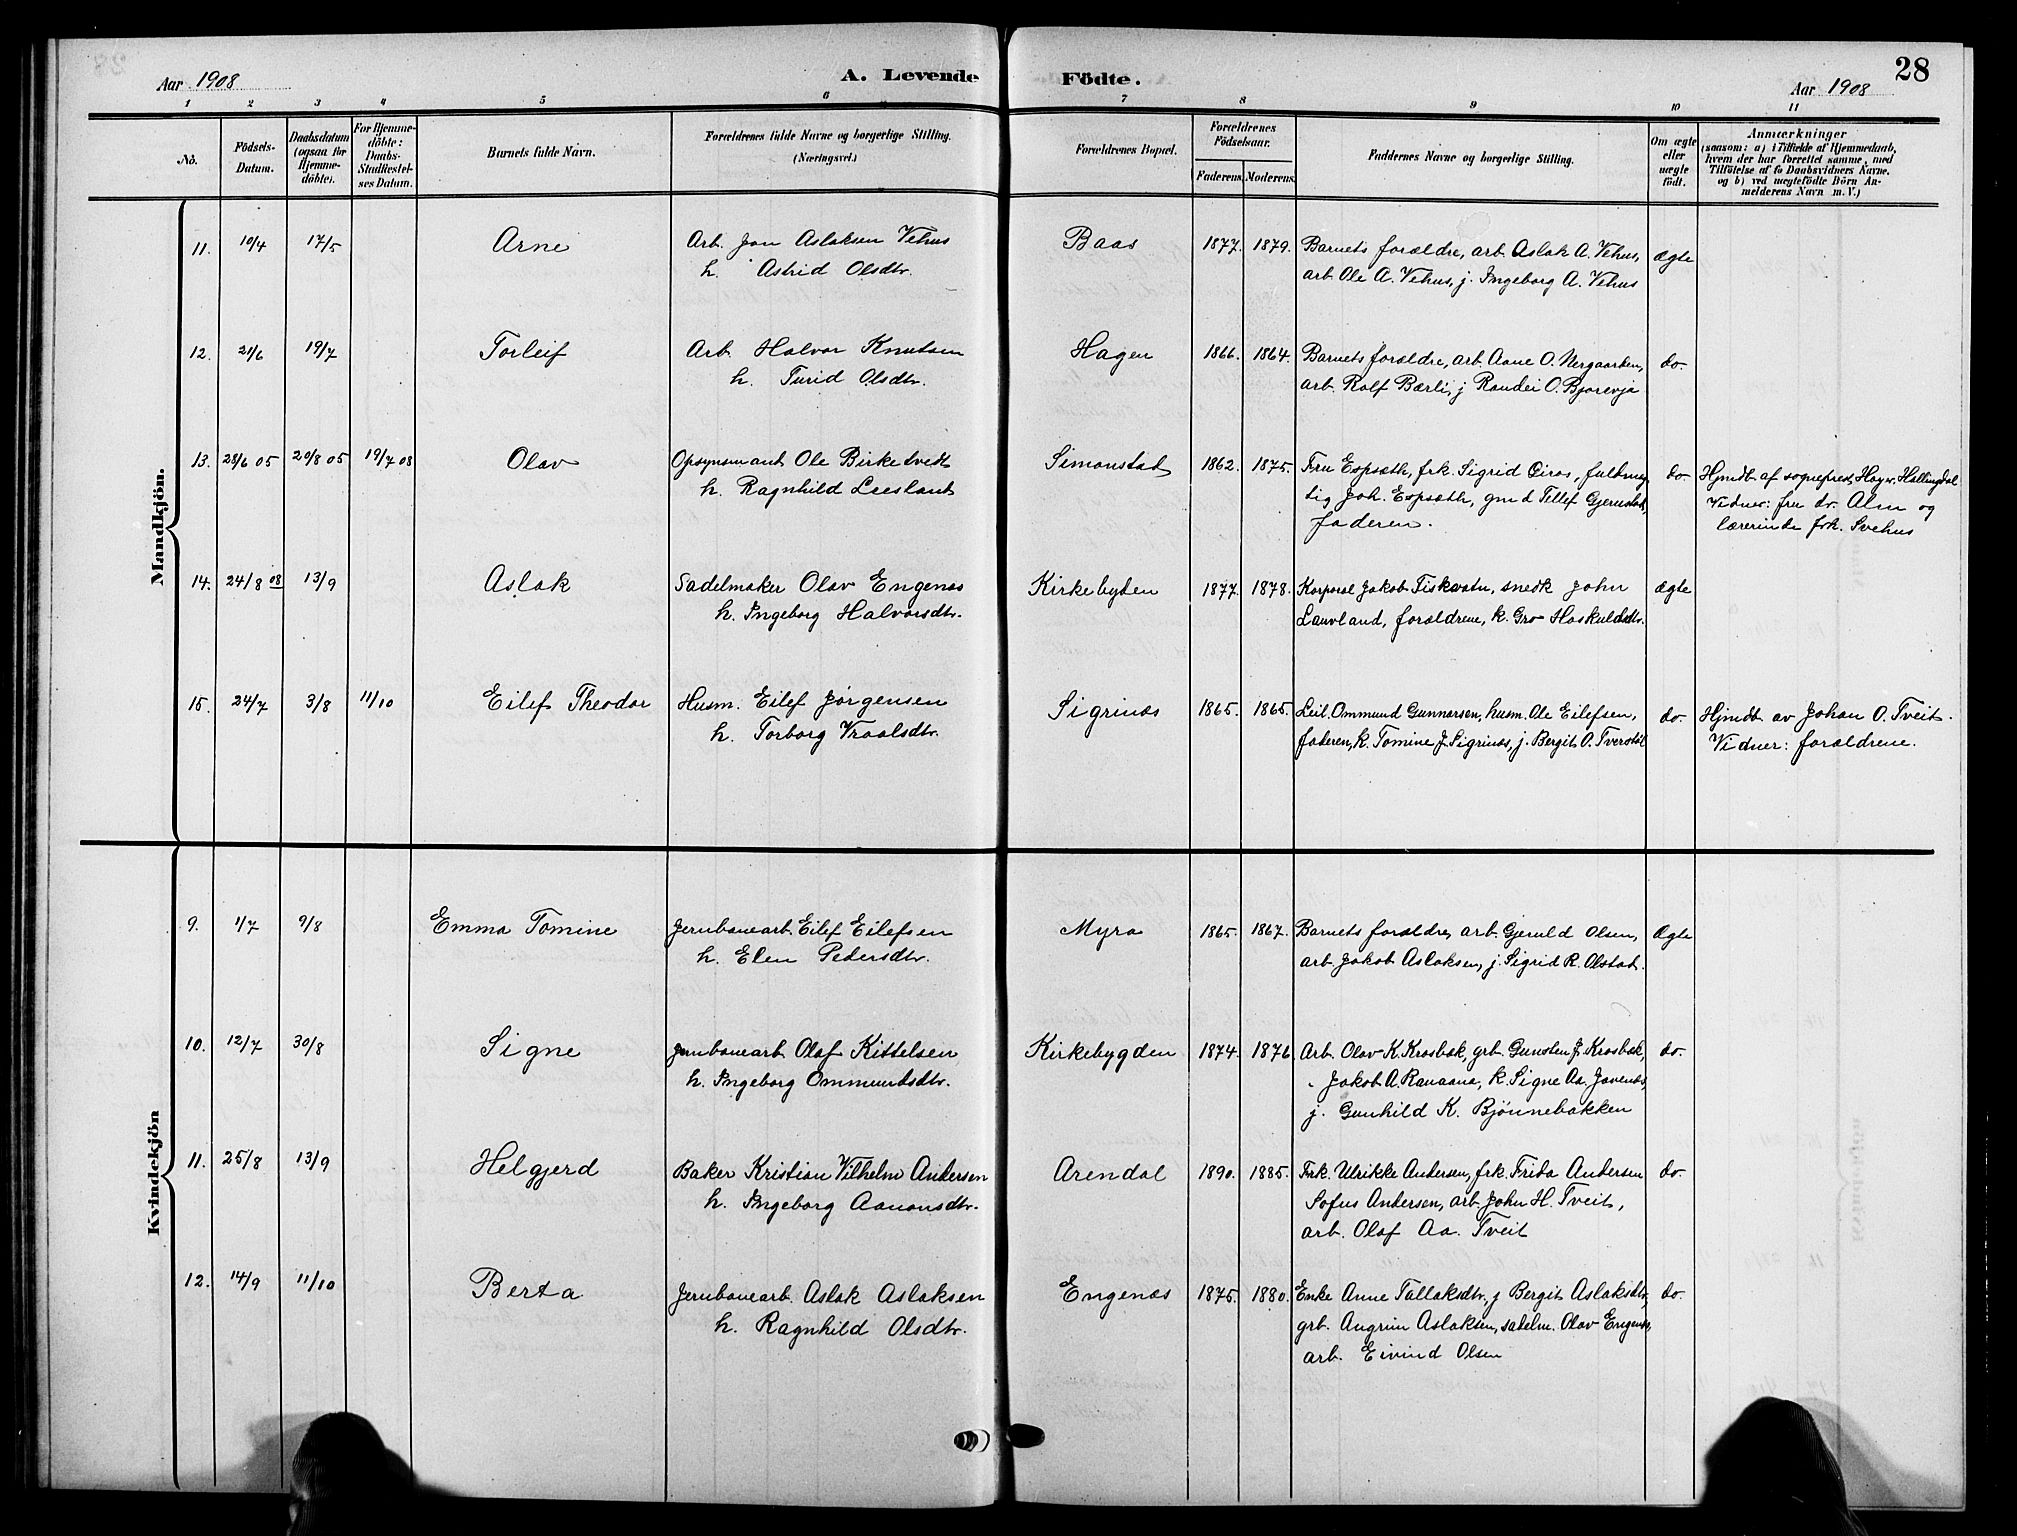 Aar 1908
A. Levende Födte.
28
Aar 1908
1 2 3 4 5 6 7 8 9 10 11
No.
Födsels-
Datum.
Daabsdatum
(ogsaa for
Hjemme-
döbte).
For Hjemme-
döbte:
Daabs-
Stadfæstel-
ses Datum.
Barnets fulde Navn.
Forældrenes fulde Navne og borgerlige Stilling.
(Næringsvei.)
Forældrenes Bopæl.
Forældrenes
Födselsaar.
Faderens. Moderens.
Faddernes Navne og borgerlige Stilling.
Om ægte
eller
uægte
født.
Anmærkninger
(saasom: a) i Tilfælde af Hjemmedaab,
hvem der har forrettet samme, med
Tilföielse af to Daabsvidners Navne,
og b) ved uægtefödte Börn An-
melderens Navn m. V.)
Mandkjön.
11. 10/4 17/5 Arne Arb. Jon Aslaksen Vehus Baas 1877. 1879. Barnets forældre, arb. Aslak A. Vehus, ægte
h. Astrid Olsdtr. arb. Ole A. Vehus, j. Ingeborg A. Vehus
12. 21/6 19/7 Torleif Arb. Halvor Knutsen Hagen 1866. 1864. Barnets forældre, arb. Aane O. Nergaarden, do.
h. Turid Olsdtr. arb. Rolf Bærli, j Randei O. Bjorevja
13. 28/6 05 20/8 05 19/7 08 Olav Opsynsmand Ole Birketvedt Simonstad 1862. 1875. Fru Espseth, frk. Sigrid Oiras, fuldmeg do. Hjmdt. af sogneprest Høyer, Hallingdal
h. Ragnhild Leesland tig Joh. Espseth, gmd Tellef Gjerustad, Vidner: fru dr. Alm og
faderen. lærerinde frk. Svehus
14. 24/8 08 13/9 Aslak Sadelmaker Olav Engenes Kirkebyden 1877. 1878. Korporal Jakob Fiskvatn, snedk John ægte
h. Ingeborg Halvorsdtr. Lauvland, forældrene, k. Gro Haskuldsdtr.
15. 24/7 3/8 11/10 Eilef Theodor Husm. Eilef Jørgensen Sigrinæs 1865. 1865. Leil. Ommund Gunnarsen, husm. Ole Eilefsen, do. Hjmdt. av Johan O. Tveit.
h. Torborg Vraalsdtr. faderen, k. Tomine J. Sigrinæs, j. Bergit O. Tverstøl Vidner: forældrene.
Kvindekjön
9. 1/7 9/8 Emma Tomine Jernbanearb. Eilef Eilefsen Myra 1865. 1867. Barnets forældre, arb. Gjeruld Olsen, Ægte
h. Elen Pedersdtr. arb. Jakob Aslaksen, j. Sigrid R. Olstad.
10. 12/7 30/8 Signe Jernbanearb. Olaf Kittelsen Kirkebygden 1874. 1876 Arb. Olav K. Krosbæk, grb. Gunsten J. Krosbæk, do.
h. Ingeborg Ommundsdtr. Jakob A. Ranaane, k. Signe Aa. Jovenæs,
j. Gunhild K. Bjönnebakken
11. 25/8 13/9 Helgjerd Baker Kristian Vilhelm Andersen Arendal 1890. 1885. Frk. Ulrikke Andersen, frk. Frida Andersen do.
h. Ingeborg Aanonsdtr. Sofus Andersen, arb. John H. Tveit,
arb. Olaf Aa. Tveit
12. 14/9 11/10 Berta Jernbanearb. Aslak Aslaksen Engenæs 1875. 1880. Enke Anne Tallaksdtr, j Bergit Aslaksdtr, do.
h. Ragnhild Olsdtr. grb. Angrim Aslaksen, sadelm. Olav Engenæs,
arb. Eivind Olsen